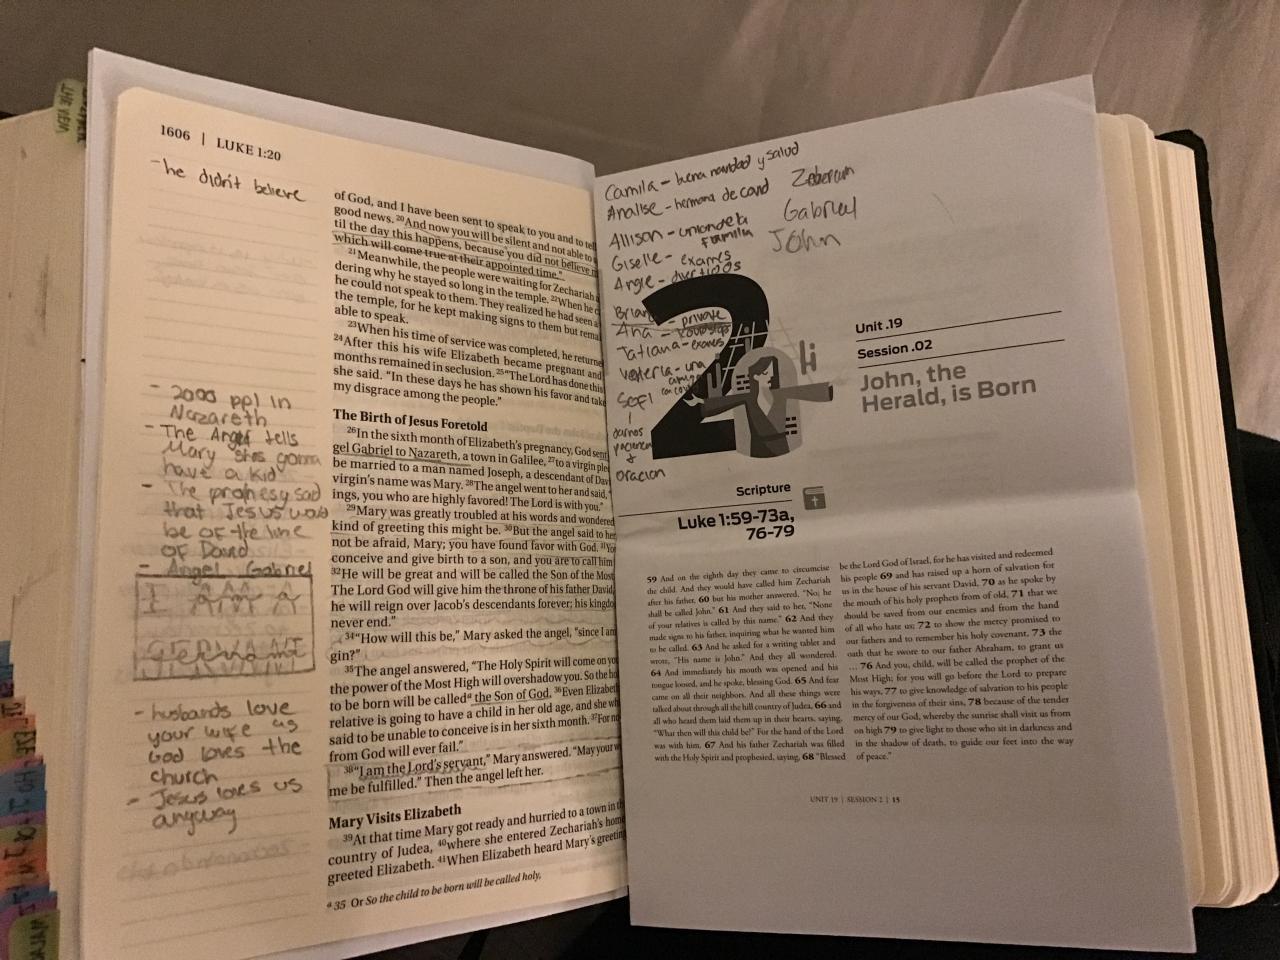 1606 | LUKE 1:20
-he didn't believe
of God, and I have been sent to speak to you and to tell
good news. 20And now you will be silent and not able to
til the day this happens, because you did not believe
which will come true at their appointed time."
21Meanwhile, the people were waiting for Zechariah
dering why he stayed so long in the temple. 22When he
he could not speak to them. They realized he had seen a
the temple, for he kept making signs to them but
able to speak.
23When his time of service was completed, he returned
24After this his wife Elizabeth became pregnant and
months remained in seclusion. 25"The Lord has done this
she said. "In these days he has shown his favor and take
my disgrace among the people."
- 2000 ppl in
Nazareth
- The Angel tells
Mary shes gonna
have a kid
- The prophesy said
that Jesus would
be of the line
of David
- Angel Gabriel
- husbands love
your wife as
God loves the
church
- Jesus loves us
anyway
The Birth of Jesus Foretold
26In the sixth month of Elizabeth's pregnancy, God sent
gel Gabriel to Nazareth, a town in Galilee, 27to a virgin
be married to a man named Joseph, a descendant of Dav
virgin's name was Mary. 28The angel went to her and said,
ings, you who are highly favored! The Lord is with you."
29Mary was greatly troubled at his words and wondered
kind of greeting this might be. 30But the angel said to her
not be afraid, Mary; you have found favor with God. 31You
conceive and give birth to a son, and you are to call him
32He will be great and will be called the Son of the Most
The Lord God will give him the throne of his father David,
he will reign over Jacob's descendants forever; his kingdo
never end."
34"How will this be," Mary asked the angel, "since I am
gin?"
35The angel answered, "The Holy Spirit will come on yo
the power of the Most High will overshadow you. So the ho
to be born will be calleda the Son of God. 36Even Elizabeth
relative is going to have a child in her old age, and she wh
said to be unable to conceive is in her sixth month. 37For no
from God will ever fail."
38"I am the Lord's servant," Mary answered. "May your w
me be fulfilled." Then the angel left her.
Mary Visits Elizabeth
39At that time Mary got ready and hurried to a town in th
country of Judea, 40where she entered Zechariah's home
greeted Elizabeth. 41When Elizabeth heard Mary's greeting
a 35 Or So the child to be born will be called holy,
Camila - buena navidad y salud
Analise - hermana de cand
Allison - union de la
familia
Giselle - exams
Angie - divertidos
Brian - private
Ana -
Tatiana - exams
Valeria - una
amiga
Sofi
oracion
Gabriel
John
2
hi
Unit .19
Session .02
John, the
Herald, is Born
Scripture
Luke 1:59-73a,
76-79
59 And on the eighth day they came to circumcise
the child. And they would have called him Zechariah
after his father, 60 but his mother answered, "No; he
shall be called John." 61 And they said to her, "None
of your relatives is called by this name." 62 And they
made signs to his father, inquiring what he wanted him
to be called. 63 And he asked for a writing tablet and
wrote, "His name is John." And they all wondered.
64 And immediately his mouth was opened and his
tongue loosed, and he spoke, blessing God. 65 And fear
came on all their neighbors. And all these things were
talked about through all the hill country of Judea, 66 and
all who heard them laid them up in their hearts, saying,
"What then will this child be?" For the hand of the Lord
was with him. 67 And his father Zechariah was filled
with the Holy Spirit and prophesied, saying, 68 "Blessed
be the Lord God of Israel, for he has visited and redeemed
his people 69 and has raised up a horn of salvation for
us in the house of his servant David, 70 as he spoke by
the mouth of his holy prophets from of old, 71 that we
should be saved from our enemies and from the hand
of all who hate us; 72 to show the mercy promised to
our fathers and to remember his holy covenant, 73 the
oath that he swore to our father Abraham, to grant us
... 76 And you, child, will be called the prophet of the
Most High; for you will go before the Lord to prepare
his ways, 77 to give knowledge of salvation to his people
in the forgiveness of their sins, 78 because of the tender
mercy of our God, whereby the sunrise shall visit us from
on high 79 to give light to those who sit in darkness and
in the shadow of death, to guide our feet into the way
of peace."
UNIT 19 | SESSION 2 | 15